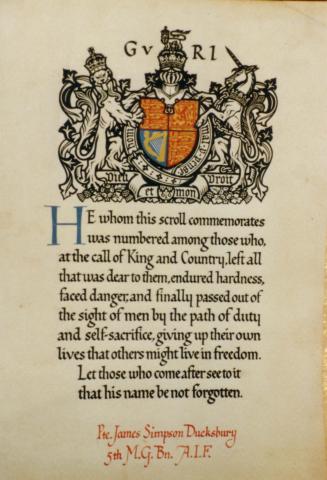 G V R I
Honi soit qui mal y pense
Dieu et mon Droit
HE whom this scroll commemorates
was numbered among those who,
at the call of King and Country, left all
that was dear to them, endured hardness,
faced danger, and finally passed out of
the sight of men by the path of duty
and self-sacrifice, giving up their own
lives that others might live in freedom.
Let those who come after see to it
that his name be not forgotten.
Pte. James Simpson Ducksbury
5th M.G. Bn. A.I.F.